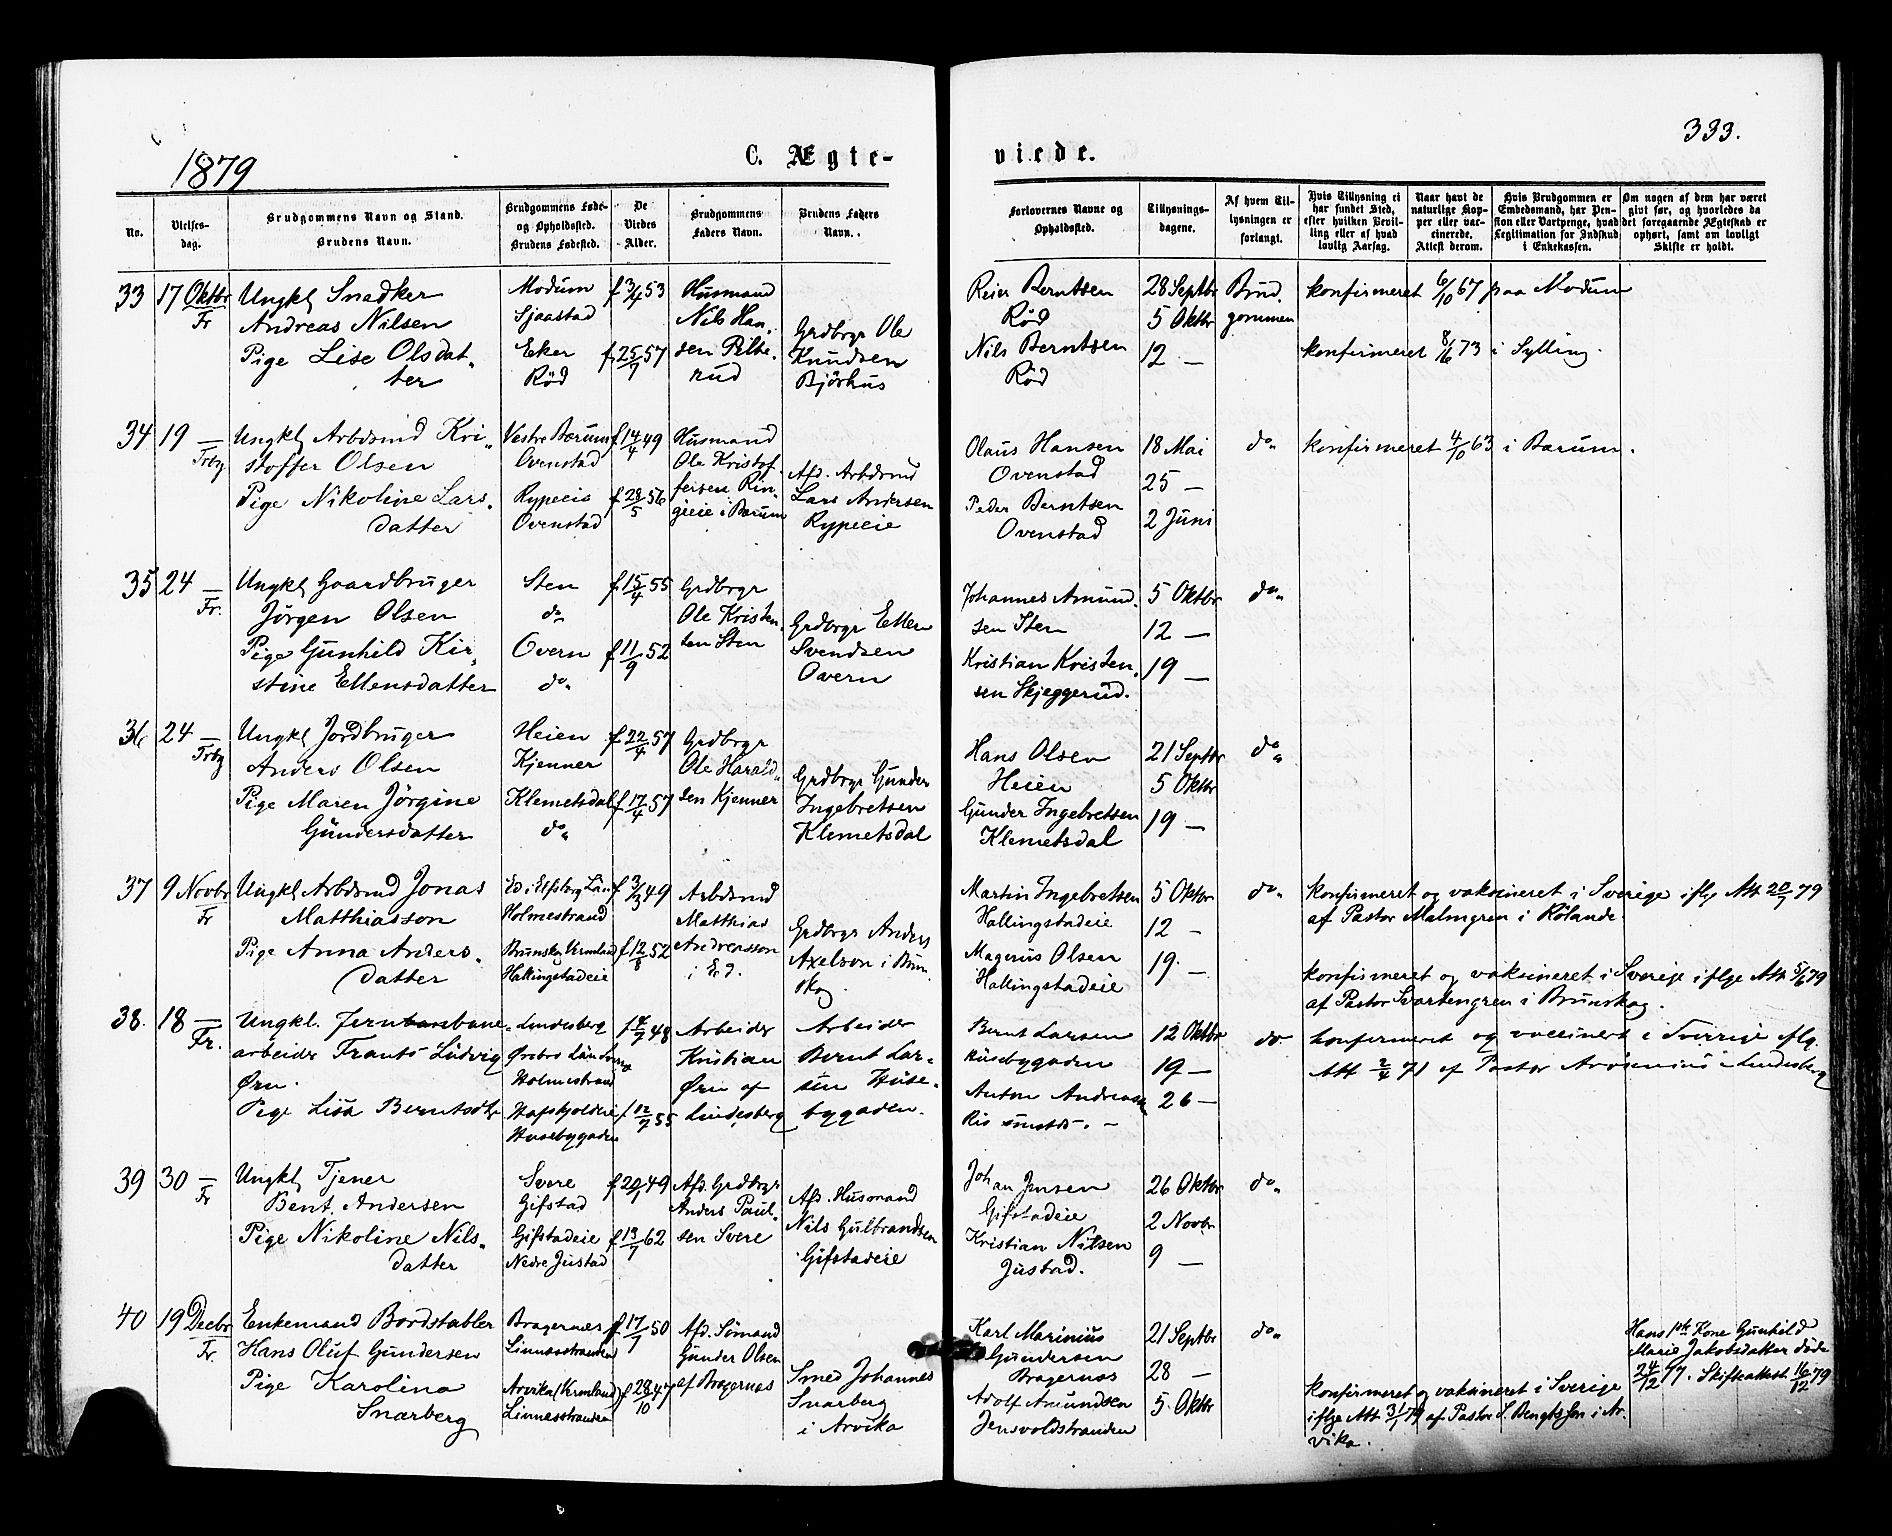 333.
1879
C. Ægte-
viede.
No.
Vielses-
dag.
Brudgommens Navn og Stand.
Brudens Navn.
Brudgommens Føde-
og Opholdssted.
Brudens Fødested.
De
Viedes
Alder.
Brudgommens
Faders Navn.
Brudens Faders
Navn.
Forlovernes Navne og
Opholdssted.
Tillysnings-
dagene.
Af hvem Til-
lysningen er
forlangt.
Hvis Tillysning ei
har fundet Sted,
efter hvilken Bevil-
ling eller af hvad
lovlig Aarsag.
Naar havt de
naturlige Kop-
per eller vac-
cinerede.
Attest derom.
Hvis Brudgommen er
Embedsmand, har Pen-
sion eller Vartpenge, hvad
Legitimation for Indskud
i Enkekassen.
Om nogen af dem har været
givt før, og hvorledes da
det foregaaende Ægteskab er
ophørt, samt om lovligt
Skifte er holdt.
33
17 Oktbr
Fr
Ungkl Snedker
Andreas Nilsen
Pige Lise Olsdat-
ter
Modum
Sjaastad
Eker
Rød
f 3/4 53
f 25/7 57
Husmand
Nils Han-
sen Pilte-
rud
Grdbrgr Ole
Knudsen
Bjørhus
Reier Berntsen
Rød
Nils Berntsen
Rød
28 Septbr
5 Oktbr
12 —
Brud-
gommen
konfirmeret 6/10 67 paa Modum
konfirmeret 8/6 73 i Sylling.
34
19 —
Frby
Ungkl Arbdsmd Kri-
stoffer Olsen
Pige Nikoline Lars-
datter
Vestre Bærum
Ovenstad
Rypeeie
Ovenstad
f 14/4 49
f 28/5 56
Husmand
Ole Kristof-
fersen Rin-
geeie i Bærum
Afd. Arbdsmd
Lars Andersen
Rypeeie
Olaus Hansen
Ovenstad
Peder Berntsen
Ovenstad
18 Mai
25 —
2 Juni
do
konfirmeret 4/10 63 i Bærum.
35
24 —
Fr.
Ungkl Gaardbruger
Jørgen Olsen
Pige Gunhild Kir-
stine Ellensdatter
Sten
do
Overn
do
f 15/4 55
f 11/9 52
Grdbrgr
Ole Kristen-
sen Sten
Grdbrgr Ellen
Svendsen
Overn
Johannes Amund-
sen Sten
Kristian Kristen-
sen Skjeggerud.
5 Oktbr
12 —
19 —
do
36
24 —
Frby
Ungkl Jordbruger
Anders Olsen
Pige Maren Jørgine
Gundersdatter
Heien
Kjenner
Klemetsdal
do
f 22/4 57
f 17/4 57
Grdbrgr
Ole Harald-
sen Kjenner
Grdbrgr Gunder
Ingebretsen
Klemetsdal
Hans Olsen
Heien
Gunder Ingebretsen
Klemetsdal
21 Septbr
5 Oktbr
19 —
do
37
9 Novbr
Fr
Ungkl Arbdsmd Jonas
Matthiasson
Pige Anna Anders-
datter
Ed i Elfsborg Län
Holmestrand
Brunskog Vermland
Hallingstadeie
f 3/3 49
f 12/8 52
Arbdsmd
Matthias
Andreasson
i Ed.
Grdbrgr Anders
Axelson i Brun-
skog.
Martin Ingebretsen
Hallingstadeie
Magnus Olsen
Hallingstadeie
5 Oktbr
12 —
19 —
do
konfirmeret og vakcineret i Sverige iflg Att 20/7 79
af Pastor Malmgren i Rölanda.
konfirmeret og vakcineret i Sverige iflge Att 5/6 79
af Pastor Svartengren i Brunskog.
38.
18 —
Fr.
Ungkl. Jernbane-
arbeider Frants Ludvig
Ørn.
Pige Lisa Berntsdtr
Lindesberg
Ørebro Län
Holmestrand
Hafskjoldeie
Husebygaden
48
f 12/7 55
Arbeider
Kristian
Ørn af
Lindesberg
Arbeider
Bernt Lar-
sen Huse-
bygaden.
Bernt Larsen
Husebygaden
Anton Andreasen
12 Oktbr
19 —
26 —
do
konfirmeret og vaccineret i Sverrige iflg.
Att 2/4 71 af Pastor Arosenius i Lindesberg
39
30 —
Fr
Ungkl Tjener
Bent. Andersen
Pige Nikoline Nils-
datter
Svere
Gifstad
Gifstadeie
Nedre Justad
f 29/1 49
f 13/7 62
Afd. Grdbrgr
Anders Paul-
sen Svere
Afd. Husmand
Nils Gulbrandsen
Gifstadeie
Johan Jensen
Gifstadeie
Kristian Nilsen
Justad.
26 Oktbr
2 Novbr
9 —
do
40
19 Decbr
Fr.
Enkemand Bordstabler
Hans Oluf Gundersen
Pige Karolina
Snarberg
Bragernæs
Linnesstranden
Arvika (Vermland)
Linnesstranden
f 17/7 50
f 28/10 47
Afd. Sømand
Gunder Olsen
af Bragernæs
Smed Johannes
Snarberg
i Arvika
Karl Marinius
Gundersen
Bragernæs
Adolf Amundsen
Jensvoldstranden
21 Septbr
28 —
5 Oktbr
do
konfirmeret og vakcineret i Sverige
iflge Att 3/1 79 af Pastor S. Bengtsson i Ar-
vika.
Hans 1ste Kone Gunhild
Marie Jakobsdatter døde
24/12 77. Skifteattest 16/12 79